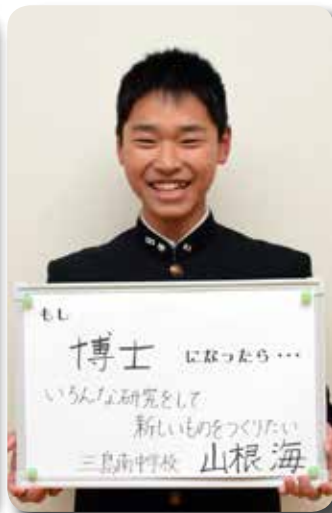 もし
博士 になったら…
いろんな研究をして
新しいものをつくりたい
三島南中学校 山根 海